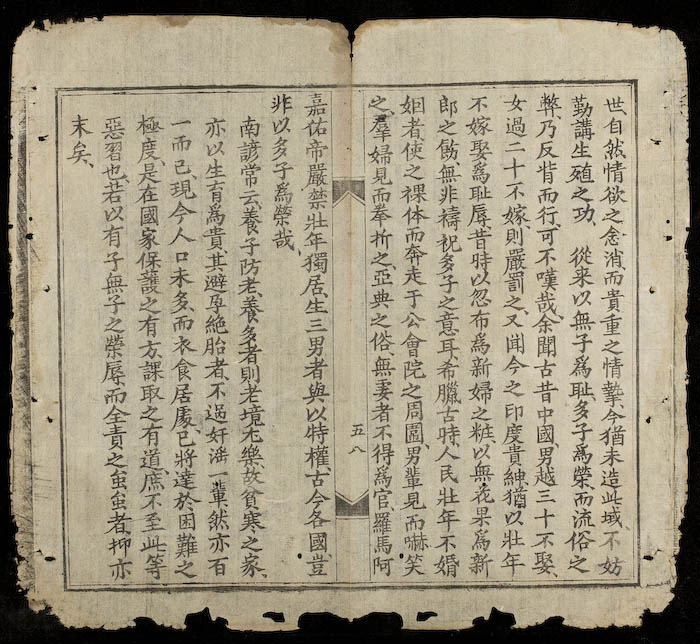 世、自然情欲之念消、而貴重之情摯、今猶未造此域、不妨
勤講生殖之功、從来以無子爲恥、多子爲榮、而流俗之
弊、乃反背而行、可不嘆哉、余聞古昔中國、男越三十不娶、
女過二十不嫁、則嚴罰之、又聞今之印度貴紳、猶以壮年
不嫁娶爲恥辱、昔時以忽布爲新婦之粧、以無花果爲新
郎之餙、無非禱祝多子之意耳、希臘古時、人民壮年不婚
姻者、使之裸体而奔走于公會院之周圍、男輩見而嚇笑
之、羣婦見而拳折之、亞典之俗、無妻者不得爲官、羅馬阿
五八
嘉佑帝嚴禁壮年獨居、生三男者與以特權、古今各國、豈
非以多子爲榮哉、
南諺常云、養子防老、養多者則老境尤樂、故貧寒之家、
亦以生育爲貴、其避孕絶胎者、不過奸滛一輩、然亦百
一而已、現今人口未多、而衣食居處、已將達於困難之
極度、是在國家保護之有方、課取之有道、庶不至此等
惡習也、若以有子無子之榮辱、而全責之蚩蚩者、抑亦
末矣、